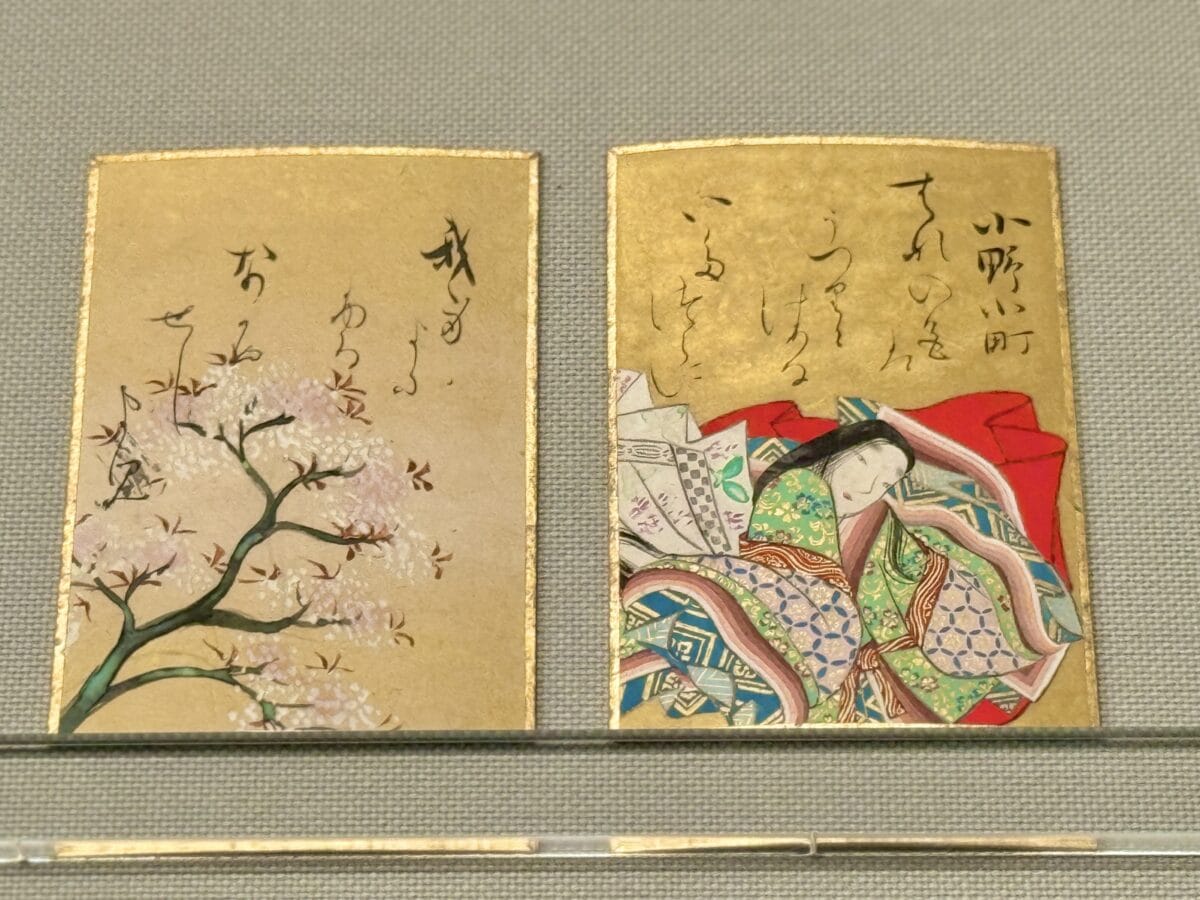 小野小町
はなの色
は
うつりに
けりな
いたつらに
我身
よに
ふる
なかめ
せし
まに